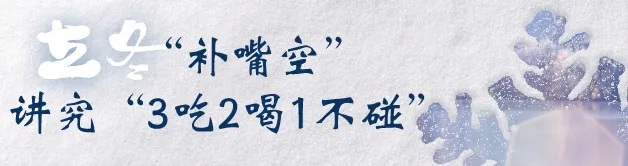 立冬“补嘴空”
讲究“3吃2喝1不碰”